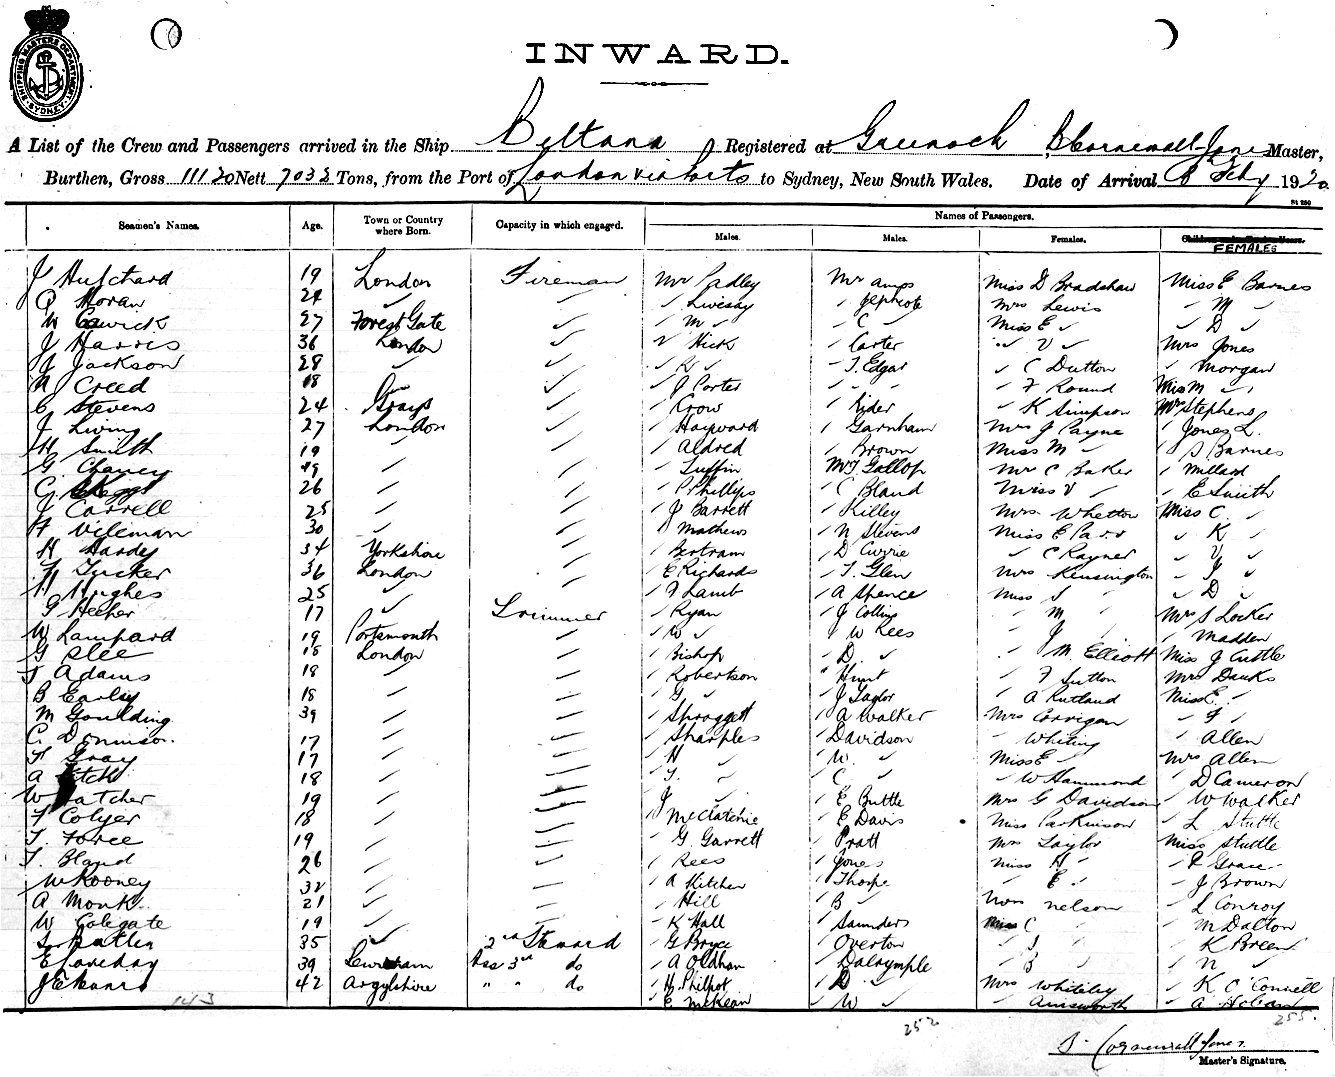 SHIPPING MASTERS DEPARTMENT SYDNEY
INWARD.
A List of the Crew and Passengers arrived in the Ship Beltana Registered at Greenock B Cornewall-Jones Master,
Burthen, Gross 11120 Nett 7033 Tons, from the Port of London via Ports to Sydney, New South Wales. Date of Arrival 8 Feby 1920
Names of Passengers.
Seamen's Names. Age. Town or Country where Born. Capacity in which engaged. Males. Males. Females. FEMALES
J 19 London Fireman Mr Padley Mr Amps Miss D Bradshaw Miss E Barnes
Moran 24 ✓ ✓ Livesay Jephcote Mrs Lewis M
W 27 Forest Gate ✓ M C Miss E D
J Harris 36 London ✓ Hick Carter V Mrs Jones
Jackson 28 ✓ ✓ T. Edgar C Dutton Morgan
N Creed 18 ✓ J Porter F Round Miss M
C Stevens 24 Grays ✓ Crow Rider K Simpson Mrs Stephens
J Living 27 London Hayward Garnham Mrs J Payne Jones L.
H Smith 19 Aldred Brown Miss M S Barnes
G Chaney 49 Tuffin Mr T Gallop Mrs C Baker Millard
G 26 P Phillips C Bland Miss V E Smith
J Carrell 25 J Barrett Killey Mrs Whetton Miss C
F Vileman 30 Mathews N Stevens Miss E Parr K
H Hardy 34 Yorkshire Bertram D Currie C Rayner V
Tucker 36 London E Richards T. Glen Mrs Kensington J
Hughes 25 F Lamb A Spence Miss S D
G Heeher 17 Trimmer Ryan J Collins M Mrs S Locker
W Lampard 19 Portsmouth W W Rees J Madden
G Slee 18 London Bishop D M. Elliott Miss J Cuttle
T Adams 18 Robertson Hunt F Sutton Mrs Danks
B Earley 18 G J Taylor A Rutland Miss E.
M Goulding 39 Shroggett A Walker Mrs Corrigan F
C Dennison. 17 Sharples Davidson Whiting Allen
F Gray 17 H W. Miss E Mrs Allen
A 18 T. C W Hammond D Cameron
W 19 J E Buttle Mrs G Davidson W Walker
F Colyer 18 McClatchie E Davis Miss Parkinson L Stuttle
T. Force 19 G. Garrett Pratt Mrs Taylor Miss Stuttle
T. Bland 26 Rees Jones Miss H F Grace
W Rooney 32 A Kitchen Thorpe E J Brown
A Monk 21 Hill B Mrs Nelson L Conroy
W Colegate 19 K Hall Saunders Miss C M Dalton
S Butler 35 2nd Steward G Bryce Overton J K Breen
E Loveday 39 Lewisham Ass 3rd do A Oldham Dalrymple B N
42 Argylshire " " do H Philpot D Mrs Whiteley K O'Connell
E McKean W Ainsworth A Hoban
143 252 255
B. Cornewall Jones
Master's Signature.